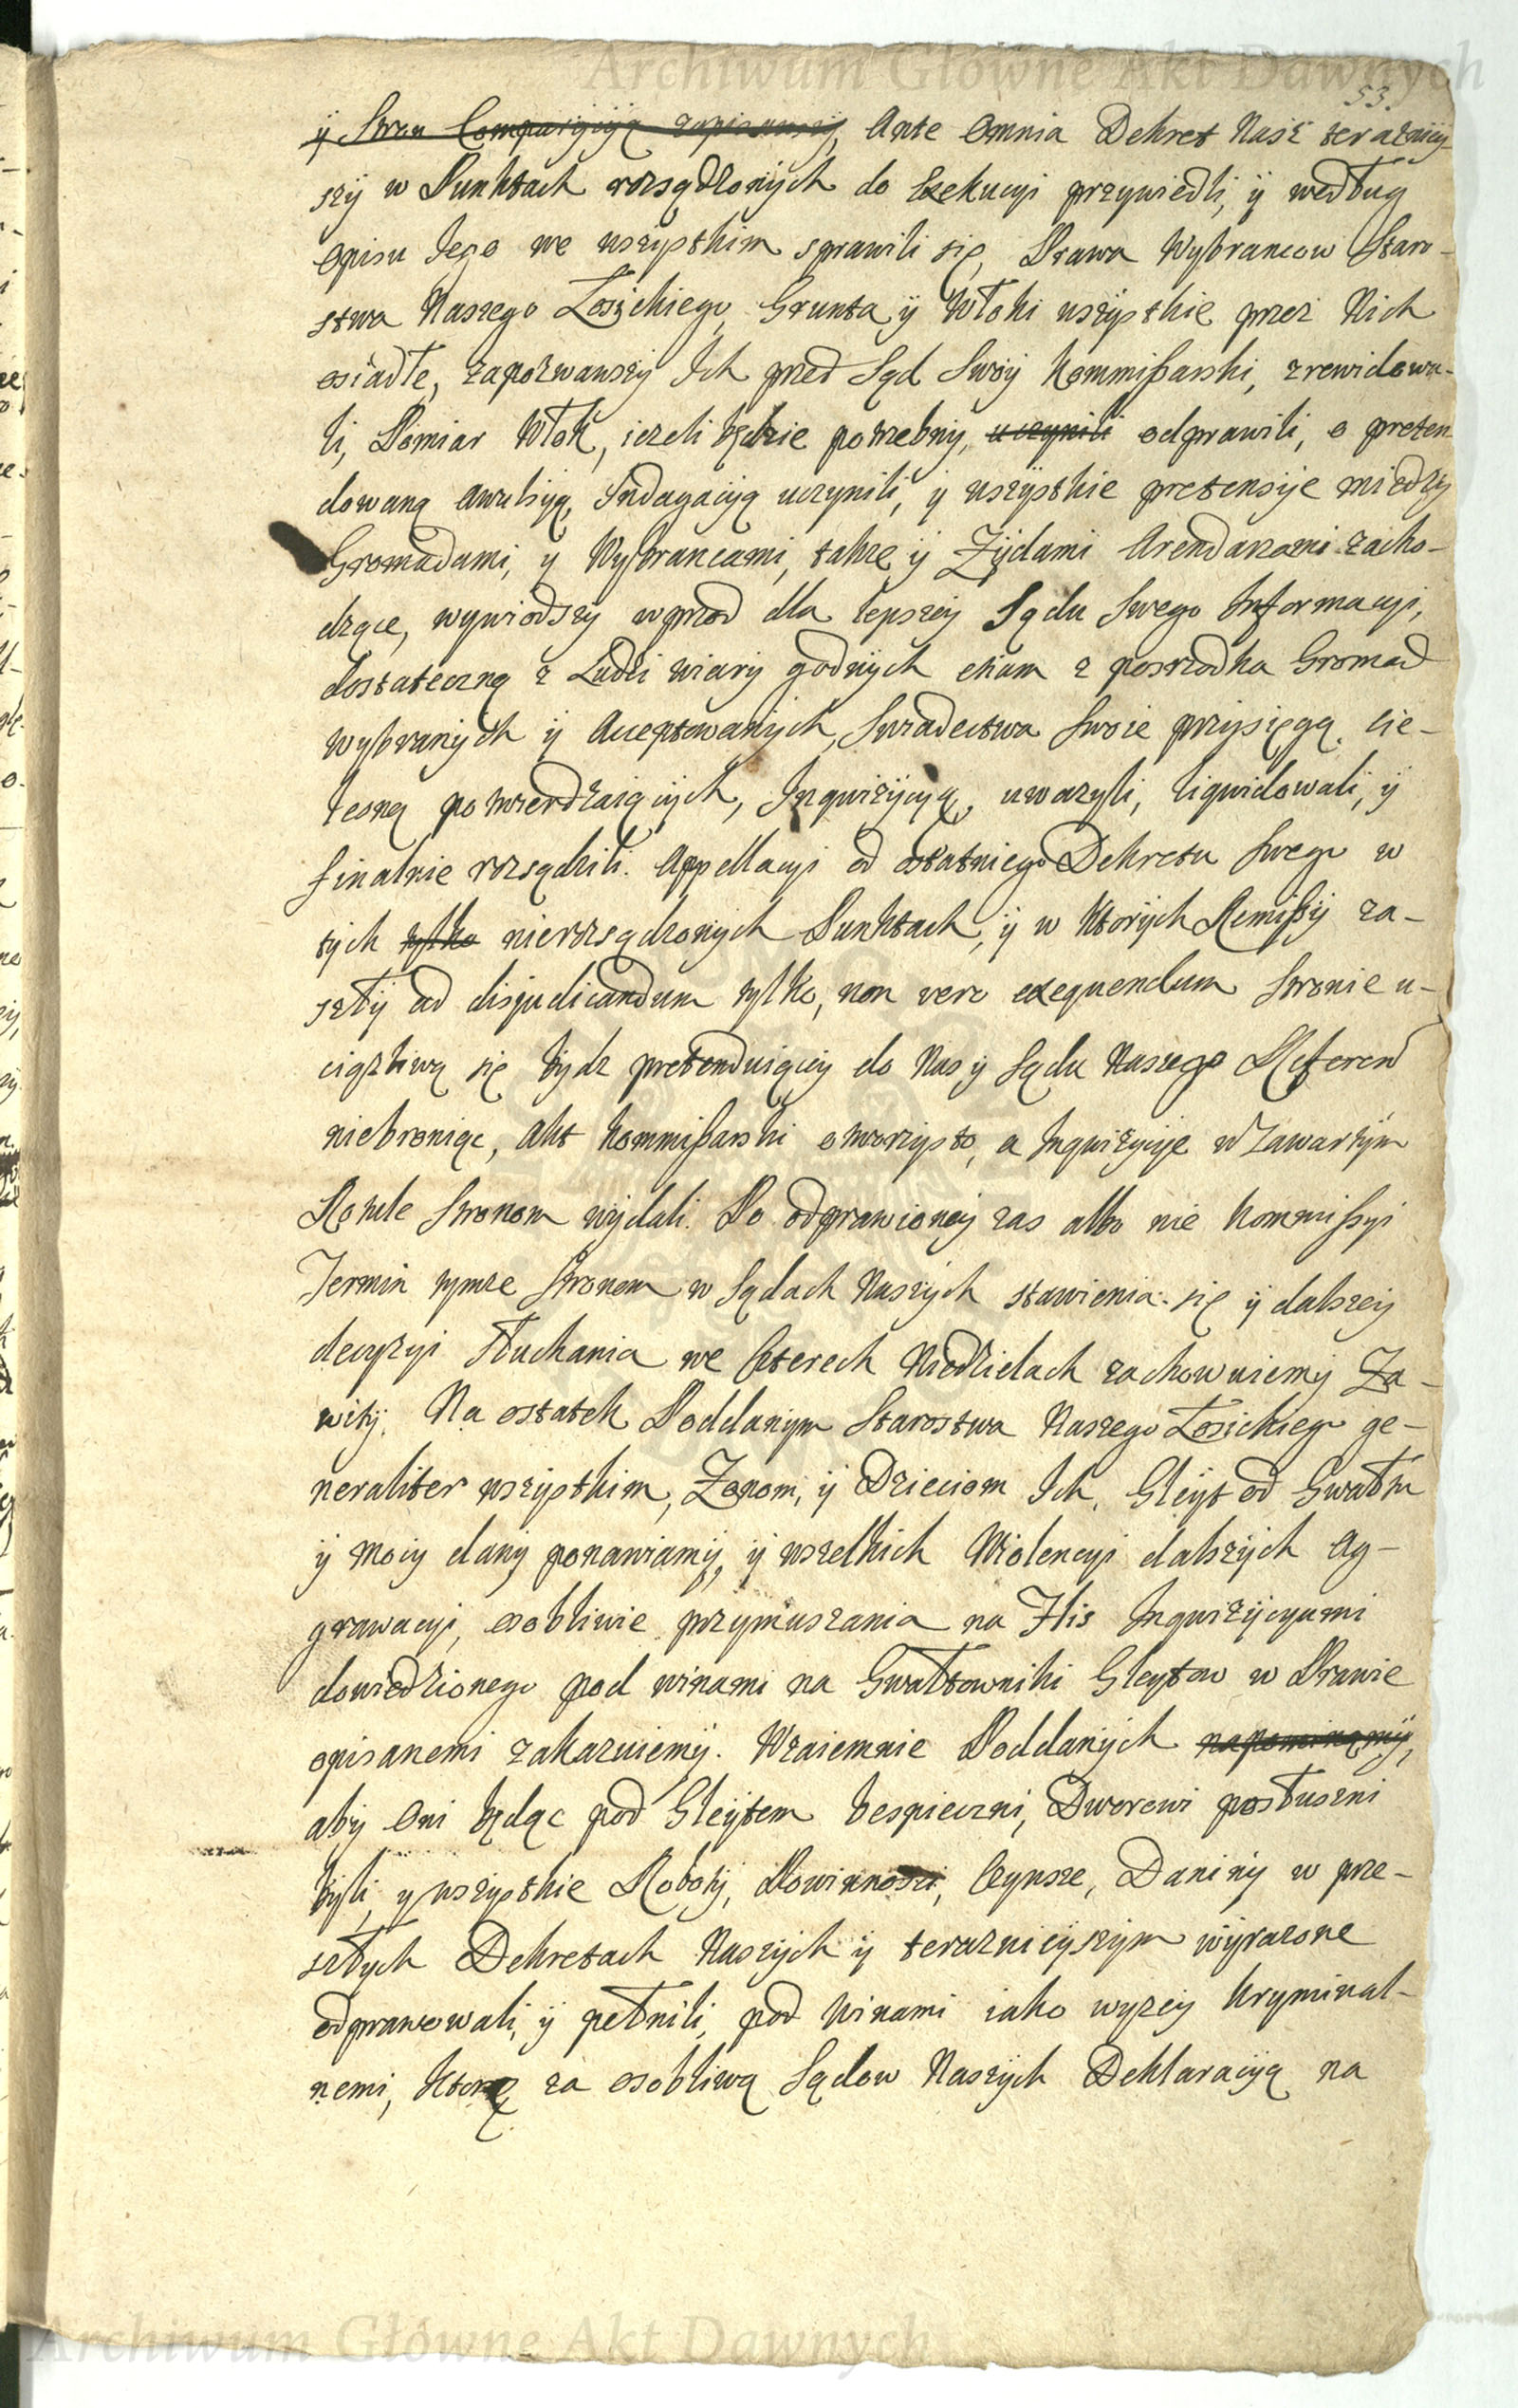 Archiwum Główne Akt Dawnych
53.
ÿ Stron Comparycyją zapisawszÿ, Ante Omnia Dekret Nasz teraznieÿ-
szÿ w Punktach rozsądzonÿch do Exekucyi przÿwiedli, ÿ według
Opisu Jego we wszÿstkim sprawili się, Prawa Wÿbrancow Staro-
stwa Naszego Łosickiego, Grunta ÿ Włoki wszÿstkie przez Nich
osiadłe, zapozwawszÿ Ich przed Sąd Swoÿ Kommißarski, zrewidowa-
li, Pomiar Włok, iezeli będzie potrzebnÿ, uczynili odprawili, o preten-
dowaną awulsyą, Indagacÿą uczÿnili, ÿ wszÿstkie pretensÿe międzÿ
Gromadami, ÿ Wÿbrancami, takze ÿ Zÿdami Arendarzami zacho-
dzące, wÿwiodszÿ wprzod dla lepszeÿ Sądu Swego Informacyi,
dostateczną z Ludzi wiarÿ godnÿch etiam z posrzodka Gromad
wÿbranÿch ÿ Acceptowanÿch, Swiadectwa Swoie przÿsięgą cie-
lesną potwierdzaiącÿch, Inqwizÿcÿą, uwazÿli, liquidowali, ÿ
finalnie rozsądzili. Appellacyi od ostatniego Dekretu Swego w
tÿch tylko nierozsądzonÿch Punktach, ÿ w ktorÿch Remißÿ za-
szłÿ ad disjudicandum tylko, non vero exequendum Stronie u-
ciązliwą się bÿdz pretenduiąceÿ do Nas ÿ Sądu Naszego Referend
niebroniąc, Akt Kommißarski otworzÿsto, a Inqwizÿcÿe w zawartÿm
Rotule Stronom wÿdali. Po odprawioneÿ zas albo nie Kommißyi
Termin tymze Stronom w Sądach Naszÿch stawienia się ÿ dalszeÿ
decyzyi słuchania we Czterech Niedzielach zachowuiemÿ Za-
witÿ. Na ostatek Poddanÿm Starostwa Naszego Łosickiego ge-
neraliter wszÿstkim, Zonom, ÿ Dzieciom Ich, Gleÿt od Gwałtu
ÿ Mocÿ danÿ ponawiamÿ, ÿ wszelkich Wiolencyi dalszÿch Ag-
grawacyi, osobliwie przymuszania na Flis Inqwizÿcyami
dowiedzionego pod winami na Gwałtowniki Gleÿtow w Prawie
opisanemi zakazuiemÿ. Wzaiemnie Poddanÿch napominamÿ,
abÿ Oni będąc pod Gleÿtem bespieczni, Dworowi posłuszni
bÿli, ÿ wszÿstkie Robotÿ, Powinnosci, Czynsze, Daninÿ w prze-
szłÿch Dekretach Naszÿch ÿ terazniejszÿm wÿrazone
odprawowali, ÿ pełnili, pod Winami iako wÿzeÿ Kryminal-
nemi, Ktorę za osobliwą Sądow Naszÿch Deklaracÿą na
Archiwum Główne Akt Dawnych